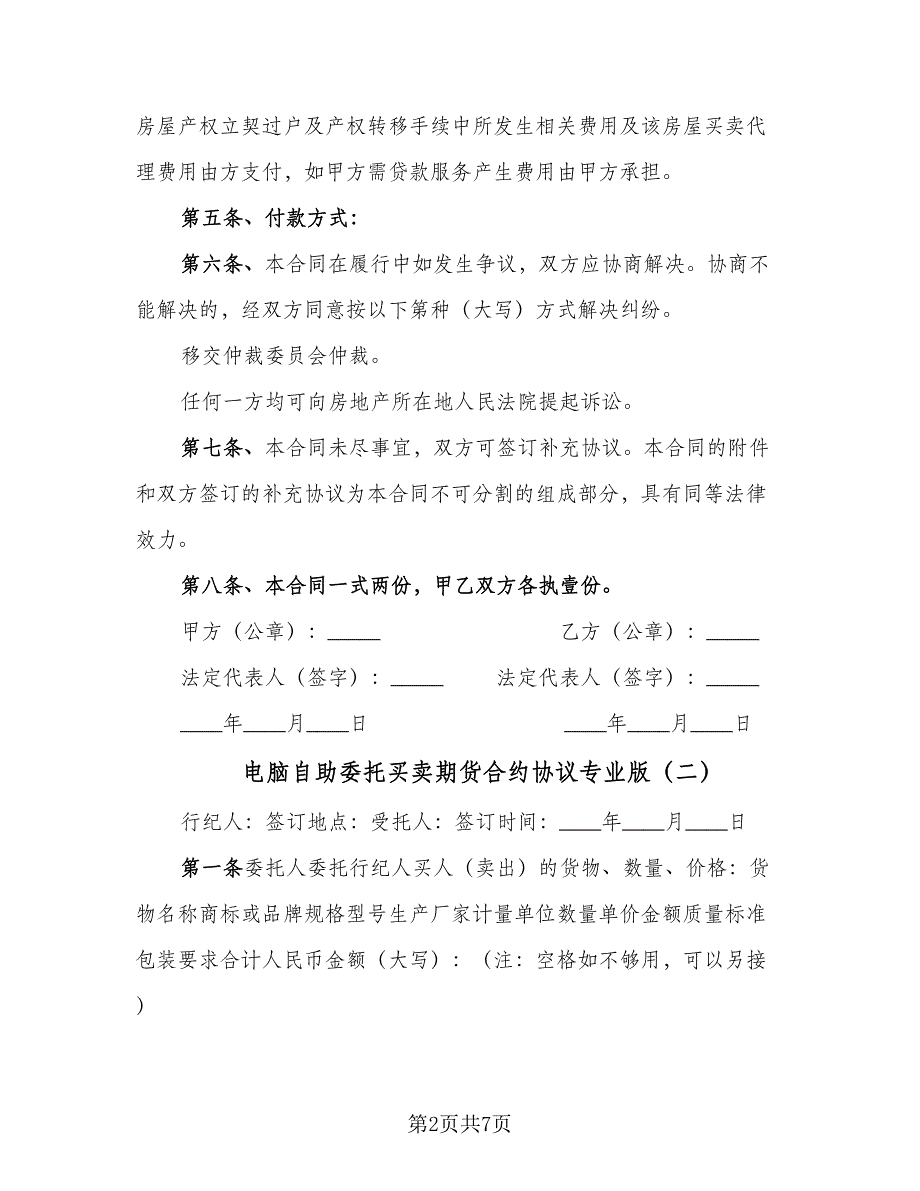 房屋产权立契过户及产权转移手续中所发生相关费用及该房屋买卖代
理费用由方支付，如甲方需贷款服务产生费用由甲方承担。
第五条、付款方式：
第六条、本合同在履行中如发生争议，双方应协商解决。协商不
能解决的，经双方同意按以下第种（大写）方式解决纠纷。
移交仲裁委员会仲裁。
任何一方均可向房地产所在地人民法院提起诉讼。
第七条、本合同未尽事宜，双方可签订补充协议。本合同的附件
和双方签订的补充协议为本合同不可分割的组成部分，具有同等法律
效力。
第八条、本合同一式两份，甲乙双方各执壹份。
甲方（公章）：_____ 乙方（公章）：_____
法定代表人（签字）：_____ 法定代表人（签字）：_____
____年____月____日 ____年____月____日
电脑自助委托买卖期货合约协议专业版（二）
行纪人：签订地点：受托人：签订时间：____年____月____日
第一条委托人委托行纪人买人（卖出）的货物、数量、价格：货
物名称商标或品牌规格型号生产厂家计量单位数量单价金额质量标准
包装要求合计人民币金额（大写）：（注：空格如不够用，可以另接
)
第2页共7页